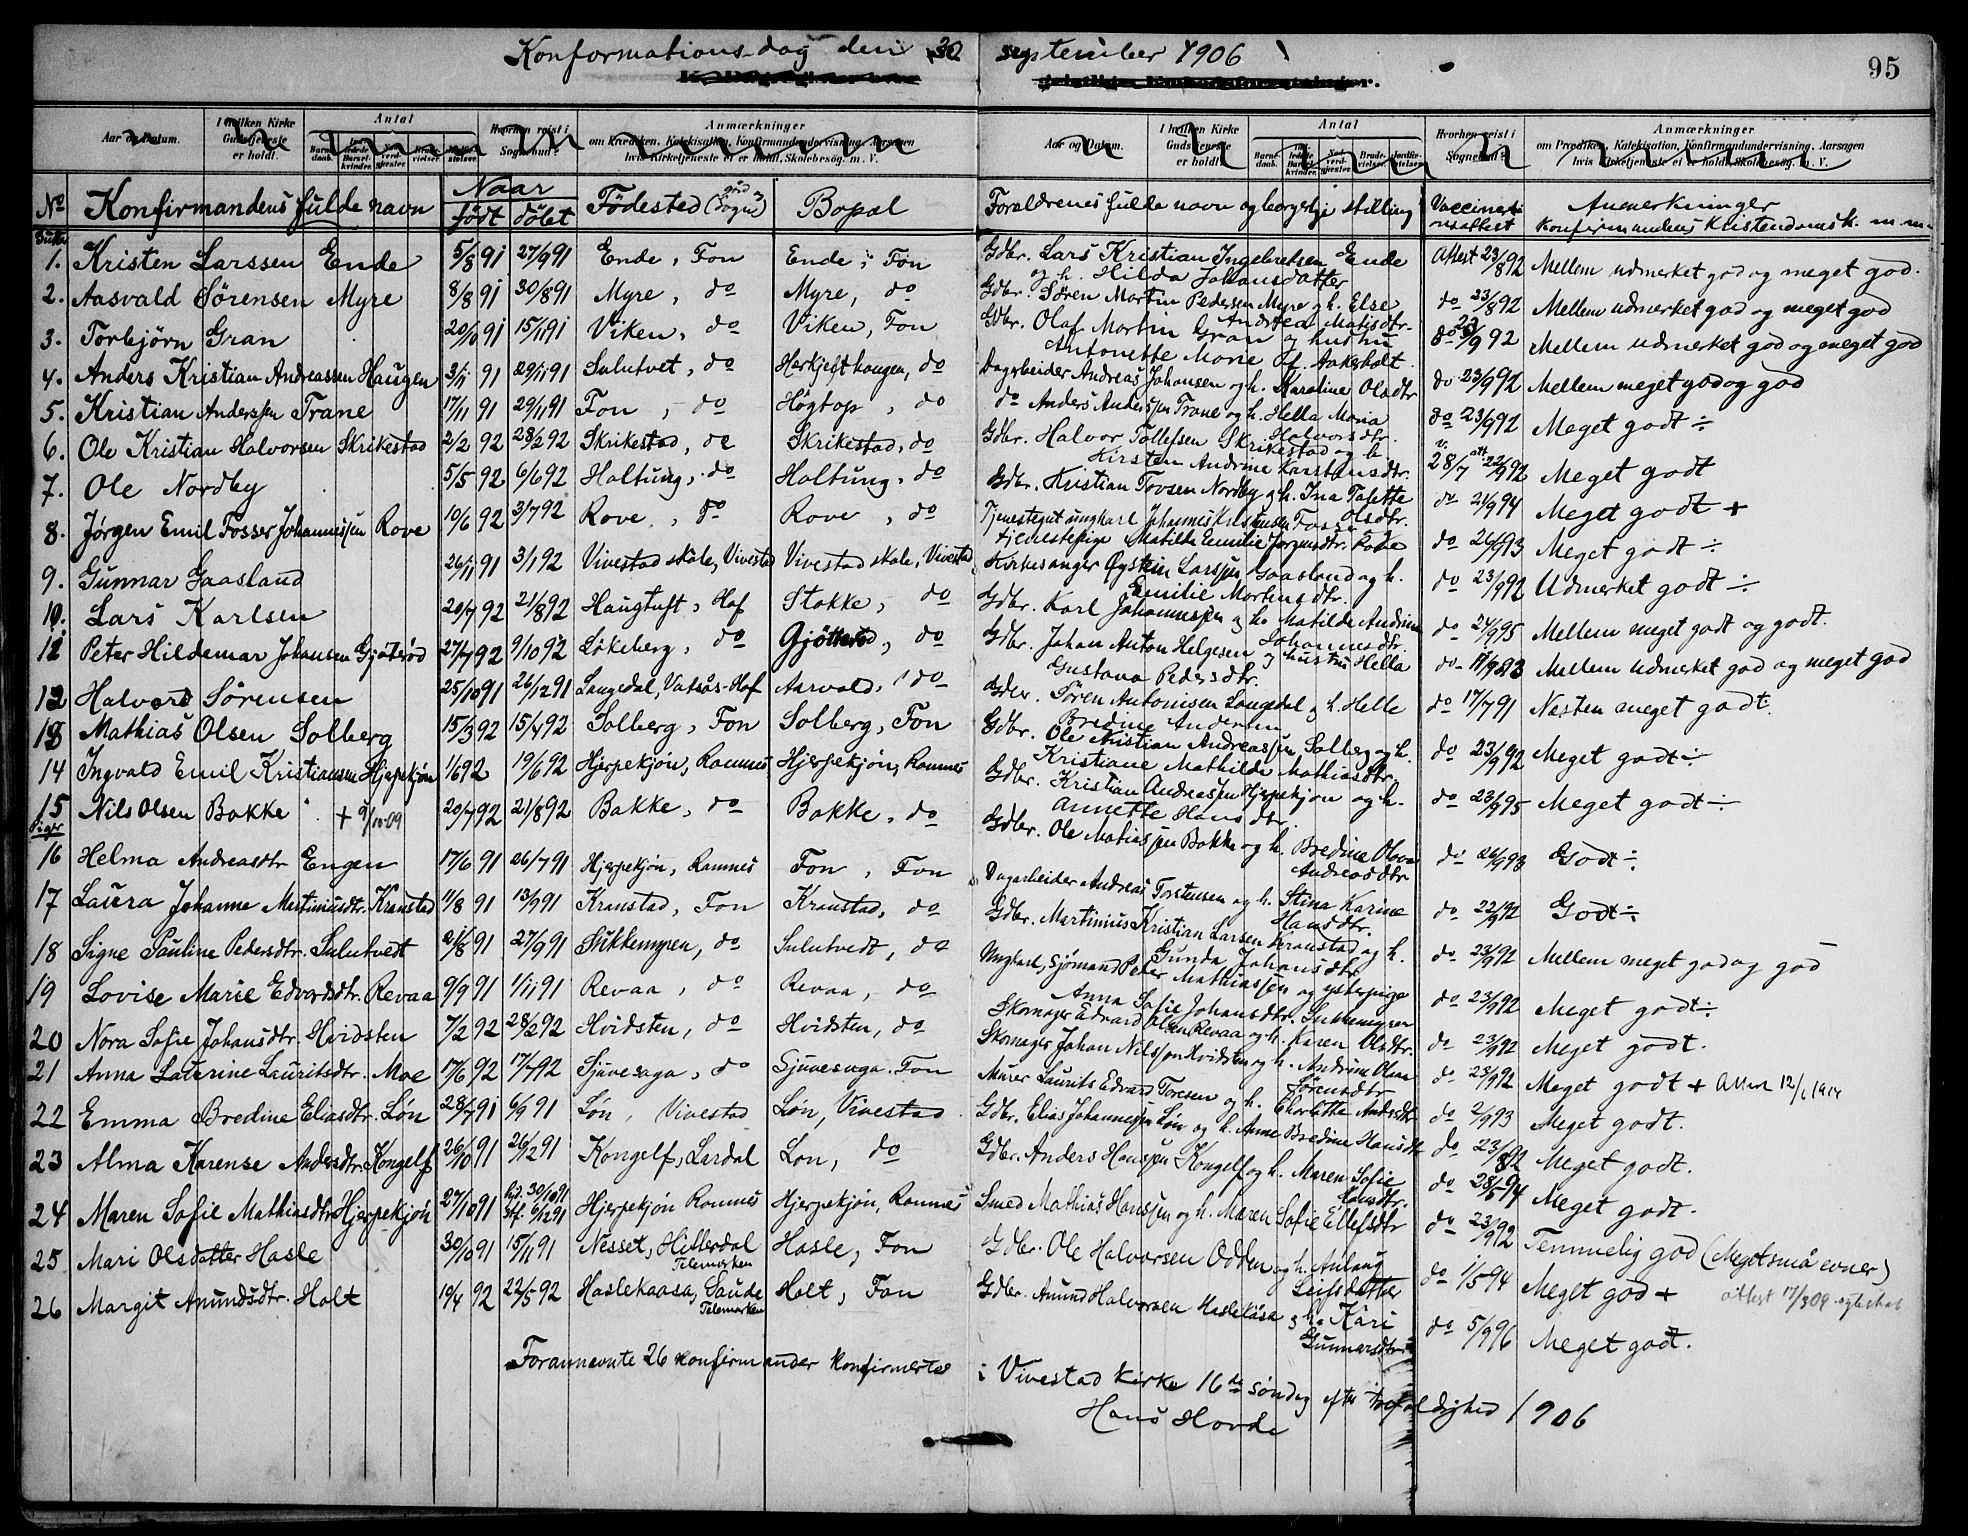 Konformationsdag den 30 september 1906
95
Aar og Datum. I hvilken Kirke Gudstjeneste er holdt. Antal Hvorhen reist i Sognebud? Anmærkninger om Prædiken, Katekisation, Konfirmandundervisning, Aarsagen hvis Kirketjeneste ei er holdt. Skolebesøg. m. V.
Aar og Datum. I hvilken Kirke Gudstjeneste er holdt. Antal Hvorhen reist i Sognebud? Anmærkninger om Prædiken, Katekisation, Konfirmandundervisning, Aarsagen hvis Kirketjeneste ei er holdt. Skolebesøg. m. V.
No Konfirmandens fulde navn Naar født døbt Födested (gård Sogn) Bopæl Forældrenes fulde navn og borgerlige stilling Vaccinationsattest Anmerkninger konfirmandens kristendomsk. m.m.
1. Kristen Larssen Ende 5/8 91 27/9 91 Ende, Fon Ende, Fon Gdbr. Lars Kristian Ingebretsen Ende og h. Hilda Johansdatter Attest 23/8 92 Mellem udmerket god og meget god.
2. Aasvald Sörensen Myre 8/8 91 30/8 91 Myre, do Myre, do Gdbr. Søren Martin Pedersen Myre og h. Else Andrea Matisdtr. do 23/8 92 Mellem udmerket god og meget god
3. Torbjörn Gran 20/10 91 15/11 91 Viken, do Viken, Fon Gdbr. Olaf Martin Gran og hustru Antonette Marie af Ankerholt do 23/9 92 Mellem udmerket god og meget god
4. Anders Kristian Andreassen Haugen 3/11 91 29/11 91 Sulutvet, do Harkjelthaugen, do Dagarbeider Andreas Johansen og h. Karoline Olsdtr do 23/9 92 Mellem meget god og god
5. Kristian Anderssen Trane 17/11 91 29/11 91 Fon, do Högtop, do do Anders Anderssen Trane og h. Hella Maria Halvorsdtr. do 23/9 92 Meget godt ÷
6. Ole Kristian Halvorsen Skrikestad 2/2 92 28/2 92 Skrikestad, do Skrikestad, do Gdbr. Halvor Tollefsen Skrikestad og h. Kirsten Andrine Karstensdtr. v. 28/7 att 22/9 92 Meget godt
7. Ole Nordby 5/5 92 6/6 92 Holtung, do Holtung, do Gdbr. Kristian Tovsen Nordby og h. Ina Talette Olsdtr. do 21/9 94 Meget godt +
8. Jørgen Emil Fosser Johannessen Rove 10/6 92 3/7 92 Rove, do Rove, do Tjenestegut ungkarl Johannes Kristensen Foss tjenestepige Matilde Emilie Jørgensdtr. Rove do 26/9 93 Meget godt ÷
9. Gunnar Gaasland 26/11 91 3/1 92 Vivestad skole, Vivestad Vivestad skole, Vivestad Kirkesanger Øystein Larssen Gaasland og h. Emilie Mortensdtr. do 23/9 92 Udmerket godt ÷
10. Lars Karlsen 20/7 92 21/8 92 Haugtuft, Hof Stokke, do Gdbr. Karl Johannessen og h. Matilde Andrine Johannesdtr. do 24/9 95 Mellem meget godt og godt.
11 Peter Hildemar Johansen Gjötterød 27/7 92 9/10 92 Løkeberg, do Gjötterød, do Gdbr. Johan Anton Helgesen og hustru Hella Gustava Pedersdtr. do Mellem udmerket god og meget god
12 Halvord Sörensen 25/10 91 26/12 91 Langedal, Vatsås-Hof Aarvold, do Gdbr. Søren Antonisen Langedal og h. Helle Bredine Andersen do 17/7 91 Næsten meget godt.
13 Mathias Olsen Solberg 15/3 92 15/4 92 Solberg, Fon Solberg, Fon Gdbr. Ole Kristian Andreassen Solberg og h. Kristiane Mathilde Mathiasdtr. do 23/9 92 Meget godt ÷
14 Ingvald Emil Kristiansen Hjerpekjøn 1/6 92 19/6 92 Hjerpekjøn, Ramnes Hjerpekjøn, Ramnes Gdbr. Kristian Andreassen Hjerpekjøn og h. Annette Hansdtr. do 23/9 95 Meget godt ÷
15 Nils Olsen Bakke + 9/10-09 20/7 92 21/8 92 Bakke, do Bakke, do Gdbr. Ole Matiassen Bakke og h. Bredine Olava Andreasdtr do 26/9 93 Godt ÷
Piger
16 Helma Andreasdtr Engen 17/6 91 26/7 91 Hjerpekjøn, Ramnes Fon, Fon Dagarbeider Andreas Torstensen og h. Stina Karine Hansdtr. do 22/9 92 Godt ÷
17 Laura Johanne Martiniusdtr. Kranstad 11/8 91 13/9 91 Kranstad, Fon Kranstad, do Gdbr. Martinius Kristian Larsen Kranstad og h. Gunda Johansdtr do 23/9 92 Mellem meget god og god
18 Signe Pauline Pedersdtr. Sulutvedt 21/8 91 27/9 91 Sukkemyren, do Sulutvedt, do Ungkarl, Sjömand Peter Mathiassen og ugift pige Anna Sofie Johansdtr. Sukkemyren do 23/9 92 Meget godt ÷
19 Lovise Marie Edvardsdtr. Revaa 9/9 91 1/11 91 Revaa, do Revaa, do Skomager Edvard Olsen Revaa og h. Karen Olsdtr. do 23/9 92 Meget godt.
20 Nora Sofie Johansdtr. Hvidsten 7/2 92 28/2 92 Hvidsten, do Hvidsten, do Skomager Johan Nilssen Hvidsten og h. Andrine Olava Sørensdtr do 23/9 92 Meget godt + Attest 12/6 1914
21 Anna Laurine Lauritsdtr. Moe 17/6 92 17/7 92 Sjuvesaga, do Sjuvesaga, Fon Murer Laurits Edvard Toresen og h. Charlotte Andersdtr do 2/9 93 Meget godt.
22 Emma Bredine Eliasdtr. Løn 28/7 91 6/9 91 Løn, Vivestad Løn, Vivestad Gdbr. Elias Johannessen Løn og h. Anne Bredine Hansdtr do 23/8 92 Meget godt.
23 Alma Karense Andersdtr. Kongelf 26/10 91 26/12 91 Kongelf, Lardal Løn, do Gdbr. Anders Hanssen Kongelf og h. Maren Sofie Hansdtr. do 28/5 94 Meget godt.
24 Maren Sofie Mathiasdtr Hjerpekjøn 27/10 91 Hj. 30/10 91 Stf. 6/12 91 Hjerpekjøn Ramnes Hjerpekjøn, Ramnes Smed Mathias Hanssen og h. Maren Sofie Ellefsdtr do 23/9 92 Temmelig god (Meget små evner)
25 Mari Olsdatter Hasle 30/10 91 15/11 91 Nesset, Hitterdal Telemarken Hasle, Fon Gdbr. Ole Halvorsen Odden og h. Anlaug Leifsdatter do 1/5 94 Meget god + attest 17/3 09
26 Margit Amundsdtr. Holt 19/4 92 22/5 92 Haslekaasa, Saude Telemarken Holt, Fon Gdbr. Amund Halvorsen Haslekåsa og h. Kari Gunnarsdtr. do 5/9 96 Meget godt.
Forannevnte 26 konfirmander konfirmertes i Vivestad kirke 16de söndag efter trefoldighed 1906
Hans Hovde